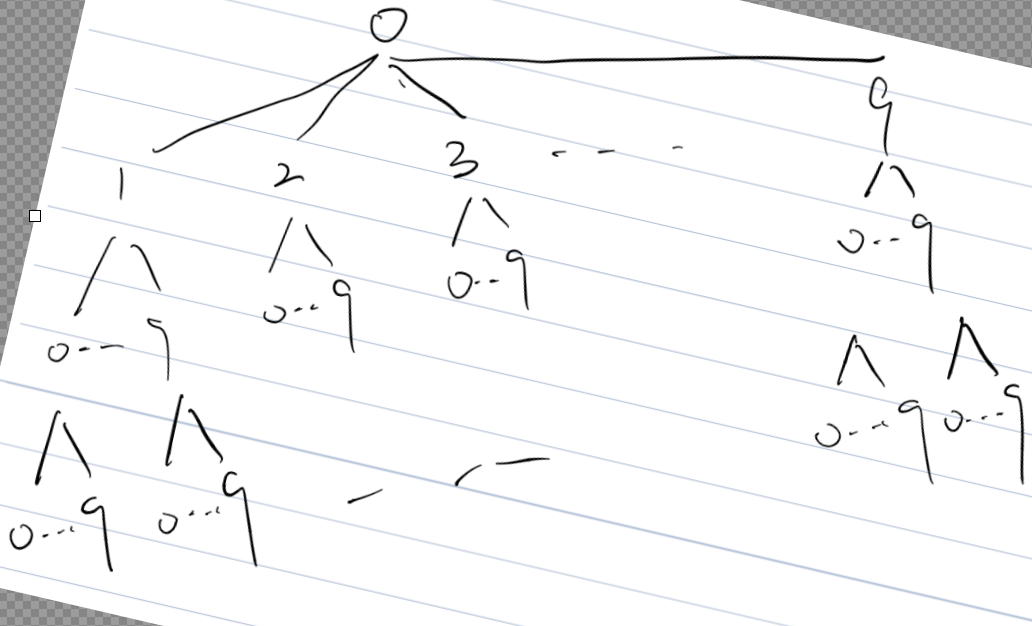 0
1 2 3 - - - 9
0 -- 9 0 --- 9 0 --- 9 0 --- 9
0 --- 9 0 --- 9 - - - 0 --- 9 0 --- 9